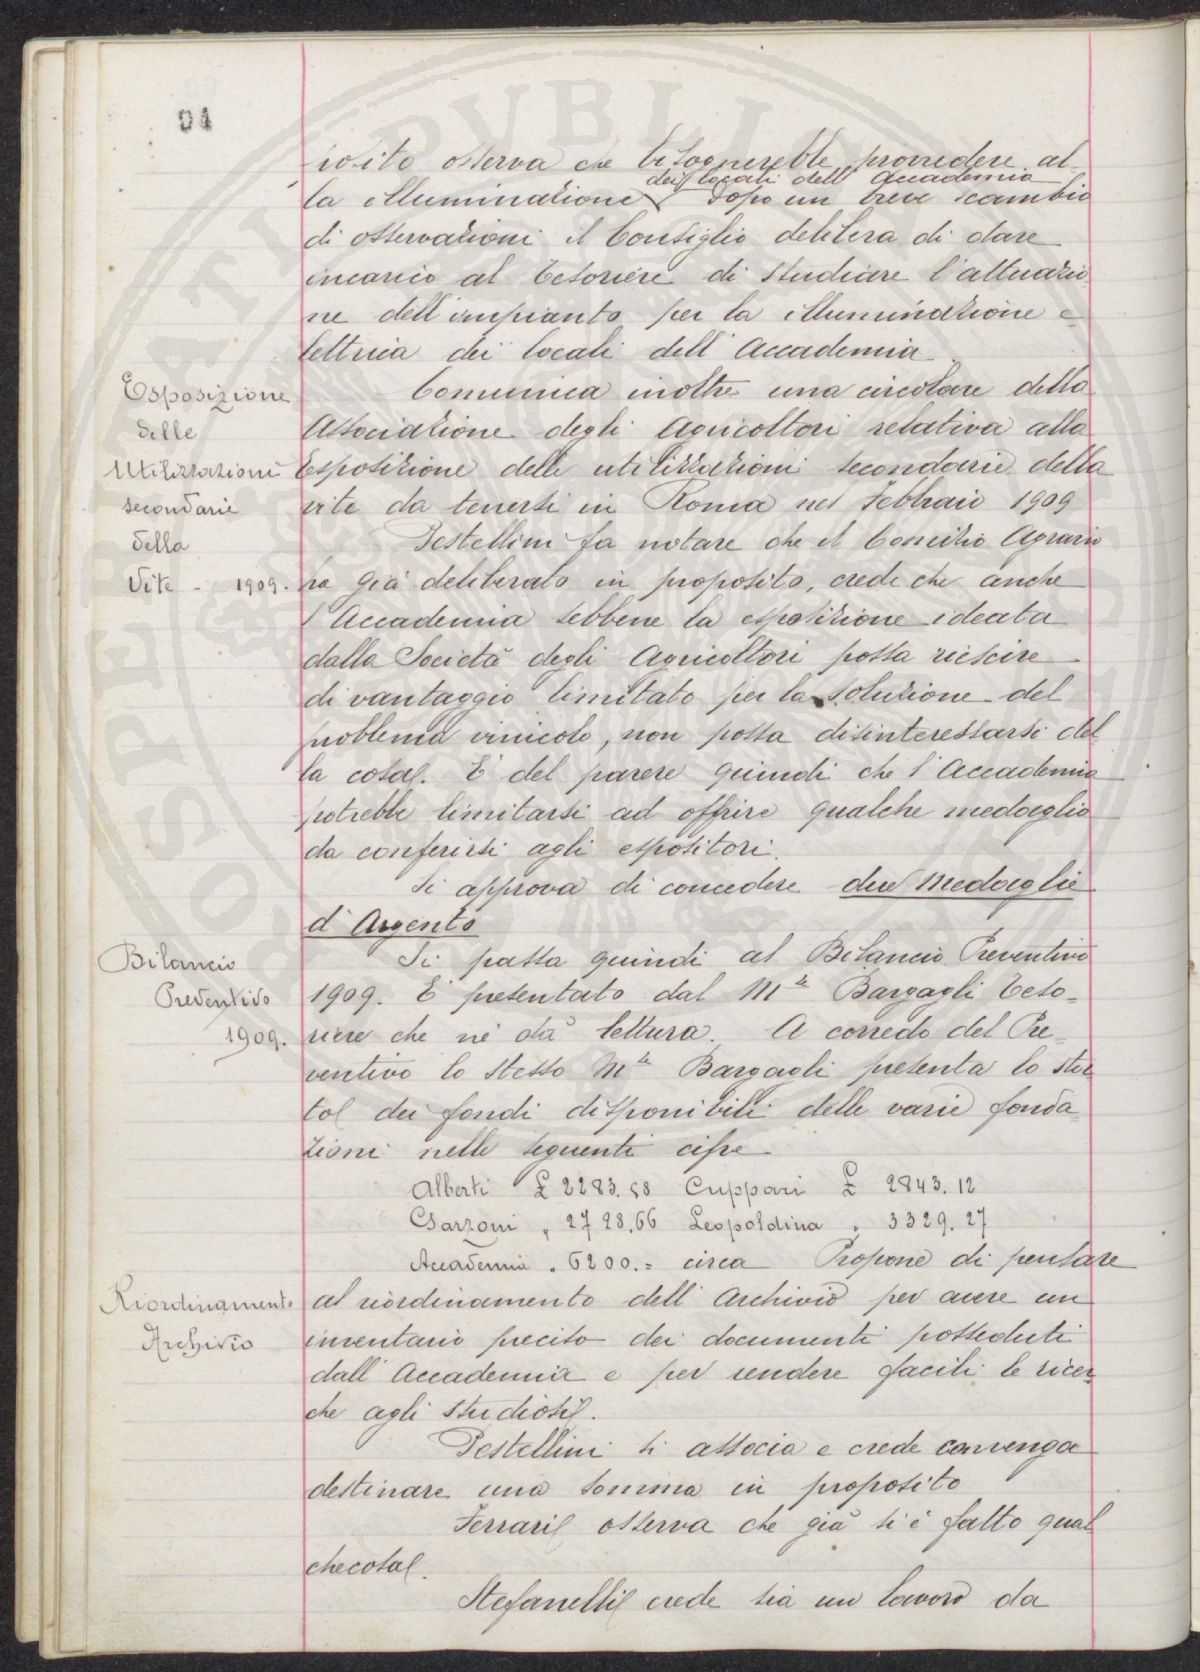 94
posito osserva che bisognerebbe provvedere al-
dei locali dell'Accademia
la illuminazione Dopo un breve scambio
di osservazioni il Consiglio delibera di dare
incarico al Tesoriere di studiare l'attuazio
ne dell'impianto per la illuminazione e-
lettrica dei locali dell'Accademia
Esposizione
delle
Utilizzazioni
secondarie
della
Vite - 1909.
Comunica inoltre una circolare della
Associazione degli Agricoltori relativa alla
Esposizione delle utilizzazioni secondarie della
vite da tenersi in Roma nel Febbraio 1909
Pestellini fa notare che il Comizio Agrario
ha già deliberato in proposito, crede che anche
l'Accademia sebbene la esposizione ideata
dalla Società degli Agricoltori possa riescire
di vantaggio limitato per la soluzione del
problema vinicolo, non possa disinteressarsi del
la cosa. È del parere quindi che l'Accademia
potrebbe limitarsi ad offrire qualche medaglia
da conferirsi agli espositori.
Si approva di concedere due Medaglie
d'Argento
Bilancio
Preventivo
1909.
Si passa quindi al Bilancio Preventivo
1909. È presentato dal Mse Bargagli Teso-
riere che ne dà lettura. A corredo del Pre-
ventivo lo stesso Mse Bargagli presenta lo sta
to dei fondi disponibili delle varie fonda-
zioni nelle seguenti cifre
Alberti £ 2283.58 Cuppari £ 2843.12
Garzoni " 2728.66 Leopoldina " 3329.27
Accademia " 6200.= circa Propone di pensare
Riordinamento
Archivio
al riordinamento dell'Archivio per avere un
inventario preciso dei documenti posseduti
dall'Accademia e per rendere facili le ricer-
che agli studiosi.
Pestellini si associa e crede convenga
destinare una somma in proposito
Ferrari osserva che già si è fatto qual
checosa.
Stefanelli crede sia un lavoro da